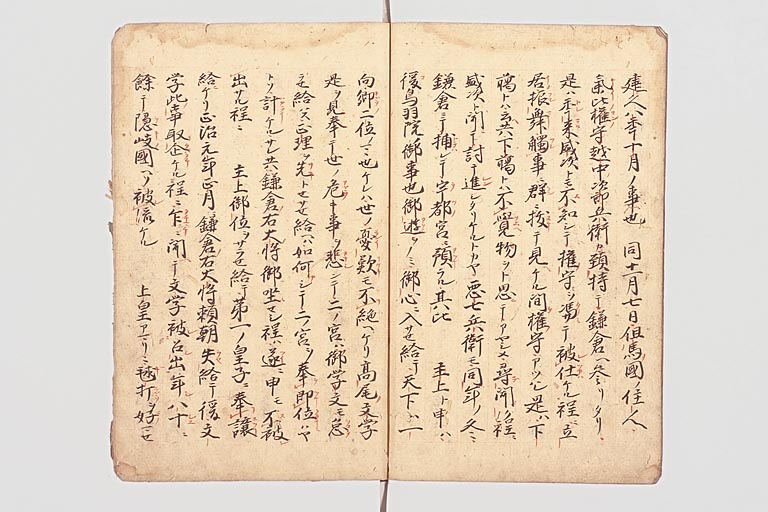 建久八年十月ノ事也 同十一月七日但馬國ノ住人
氣比權守越中次郎兵衛カ頸持テ鎌倉ヘ参リタリ
是ハ年来盛次トモ不知シテ權守ヲ馮テ被仕ケル程ニ立
居振舞觸事群抜テ見ケル間權守アツハレ是ハ下
﨟トハ云共下﨟トハ不覺物ヲト思テアヤシメ尋聞ケル程ニ
盛次ト聞テ討テ進シタリケルトカヤ悪七兵衛モ同年ノ冬
鎌倉ニテ捕レテ宇都宮ニ預ラル其比 主上ト申ハ
後鳥羽院ノ御事也御遊ヲノミ御心ニ入サセ給テ天下ハ一
向卿二位ノミ也ケレハ世ノ憂歎モ不絶ヘケリ高尾文学
是ヲ見奉テ世ノ危キ事ヲ悲ミテ二ノ宮ハ御学文モ怠
ラ給ハス正理ヲ先トセサセ給ヘハ如何ニシテ二ノ宮ヲ奉即位ハヤ
トソ計ケルサレ共鎌倉右大将御坐マシ程ハ遂ニ申モ不被
出サル程ニ 主上御位ヲサラセ給テ第一ノ皇子ニ奉譲
給ケリ正治元年正月鎌倉右大将頼朝失給テ後文
学此事取企ケル程ニ乍ニ聞テ文学被召出年八十ニ
餘テ隠岐國ヘソ被流ケル 上皇アマリニ毬打ヲ好マセ